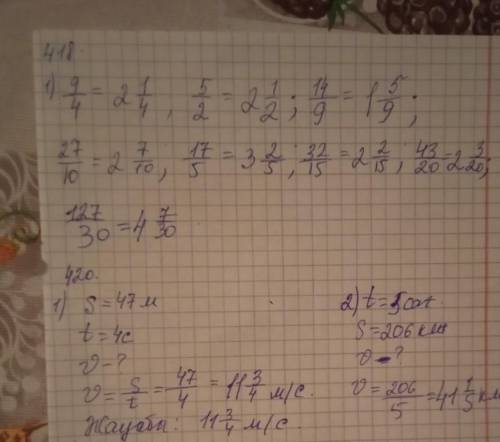 418.
1) 9/4 = 2 1/4, 5/2 = 2 1/2; 14/9 = 1 5/9;
27/10 = 2 7/10, 17/5 = 3 2/5; 32/15 = 2 2/15; 43/20 = 2 3/20;
127/30 = 4 7/30
420.
1) S = 47 м
t = 4с
v - ?
v = S/t = 47/4 = 11 3/4 м/с.
Жауабы: 11 3/4 м/с.
2) t = 5 сағ
S = 206 км
v - ?
v = 206/5 = 41 1/5 км